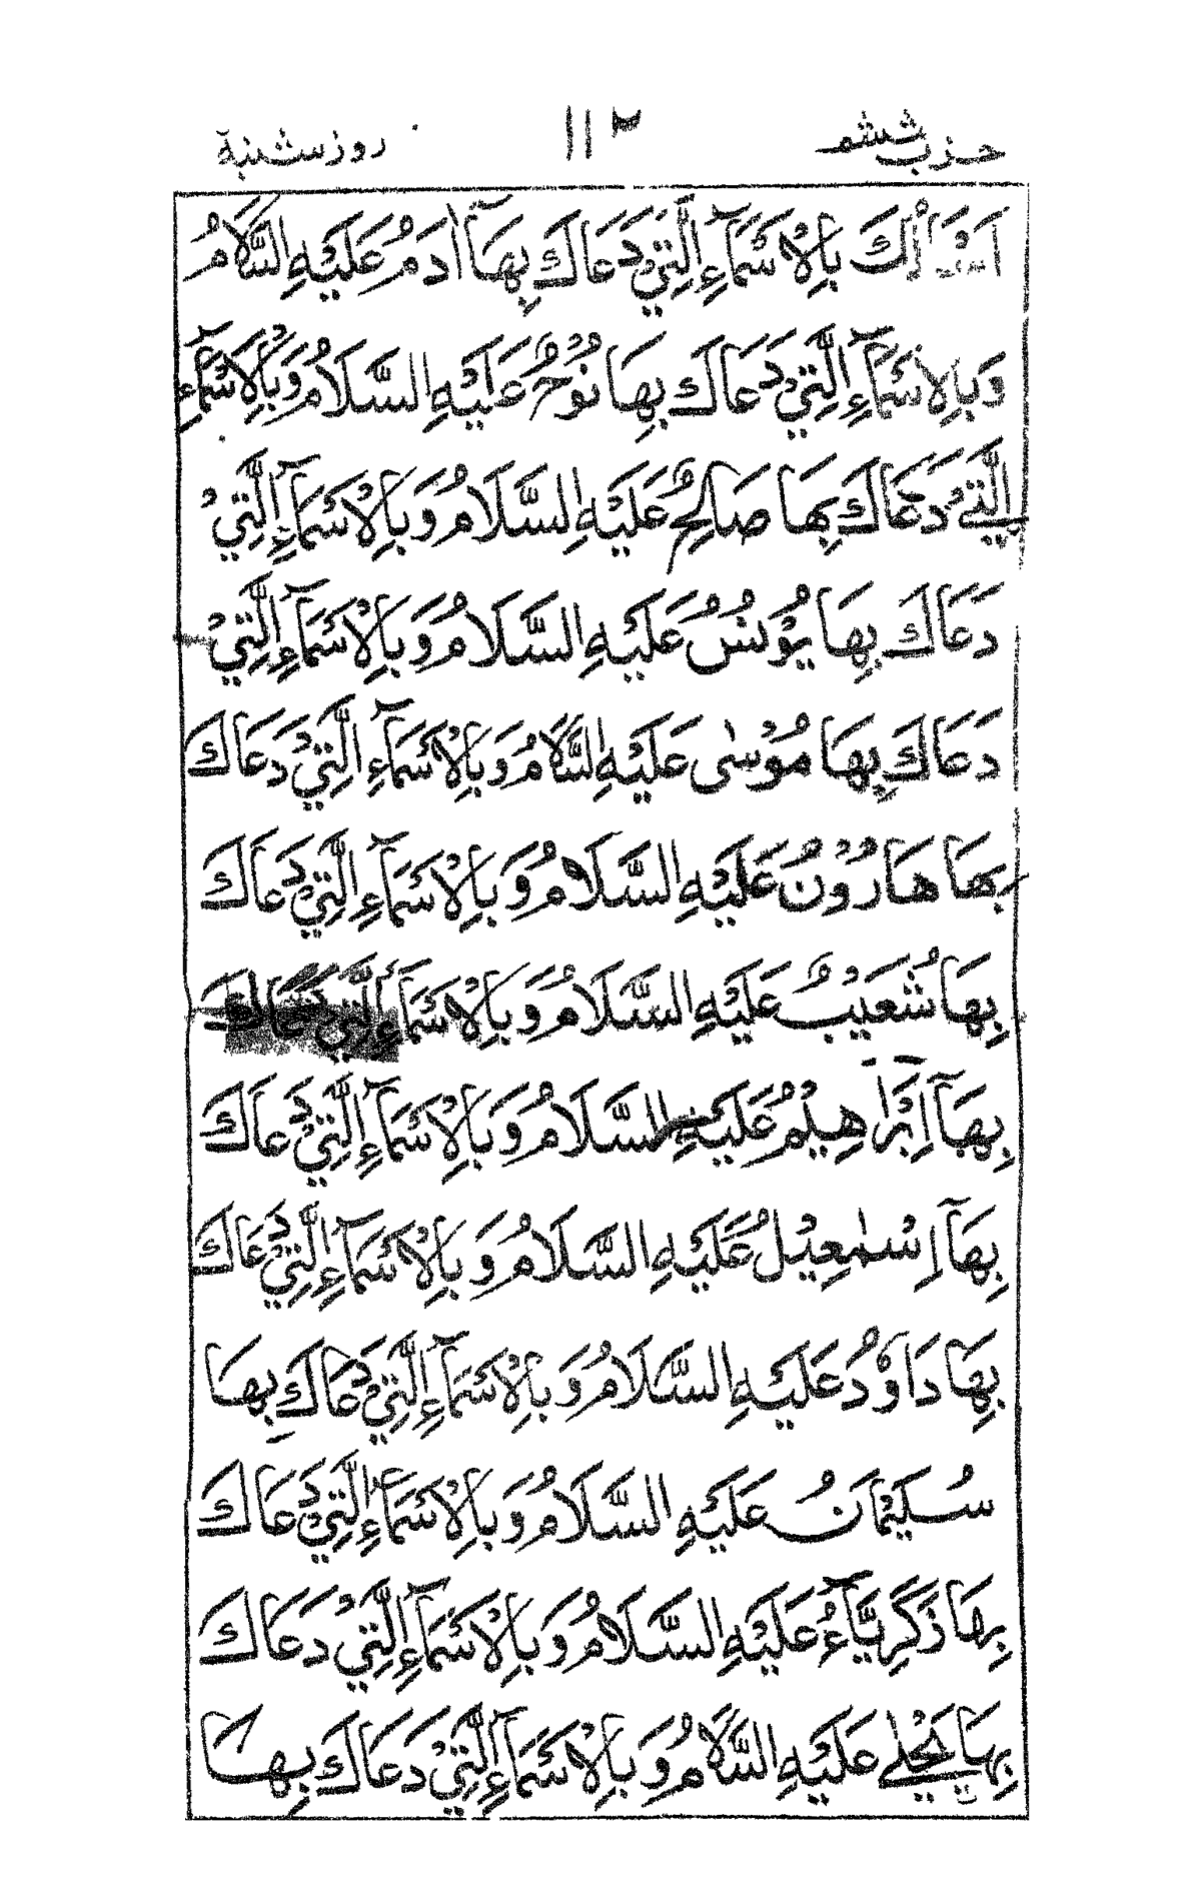 حزب ششم ١١٢ روز سشنبة
اَسْأَلُكَ بِالْاَسْمَآءِ الَّتِيْ دَعَاكَ بِهَآ اٰدَمُ عَلَيْهِ السَّلَامُ
وَبِالْاَسْمَآءِ الَّتِيْ دَعَاكَ بِهَا نُوْحٌ عَلَيْهِ السَّلَامُ وَبِالْاَسْمَآءِ
الَّتِيْ دَعَاكَ بِهَا صَالِحٌ عَلَيْهِ السَّلَامُ وَبِالْاَسْمَآءِ الَّتِيْ
دَعَاكَ بِهَا يُوْنُسُ عَلَيْهِ السَّلَامُ وَبِالْاَسْمَآءِ الَّتِيْ
دَعَاكَ بِهَا مُوْسٰى عَلَيْهِ السَّلَامُ وَبِالْاَسْمَآءِ الَّتِيْ دَعَاكَ
بِهَا هَارُوْنُ عَلَيْهِ السَّلَامُ وَبِالْاَسْمَآءِ الَّتِيْ دَعَاكَ
بِهَا شُعَيْبٌ عَلَيْهِ السَّلَامُ وَبِالْاَسْمَآءِ الَّتِيْ دَعَاكَ
بِهَآ اِبْرَاهِيْمُ عَلَيْهِ السَّلَامُ وَبِالْاَسْمَآءِ الَّتِيْ دَعَاكَ
بِهَآ اِسْمٰعِيْلُ عَلَيْهِ السَّلَامُ وَبِالْاَسْمَآءِ الَّتِيْ دَعَاكَ
بِهَا دَاوٗدُ عَلَيْهِ السَّلَامُ وَبِالْاَسْمَآءِ الَّتِيْ دَعَاكَ بِهَا
سُلَيْمَانُ عَلَيْهِ السَّلَامُ وَبِالْاَسْمَآءِ الَّتِيْ دَعَاكَ
بِهَا زَكَرِيَّآءُ عَلَيْهِ السَّلَامُ وَبِالْاَسْمَآءِ الَّتِيْ دَعَاكَ
بِهَا يَحْيٰى عَلَيْهِ السَّلَامُ وَبِالْاَسْمَآءِ الَّتِيْ دَعَاكَ بِهَا